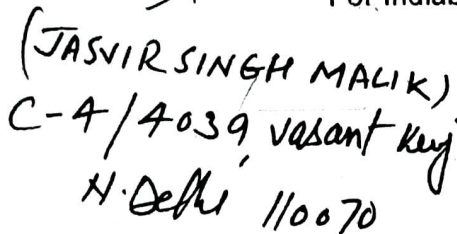 For Indiab
(JASVIR SINGH MALIK)
C-4/4039, Vasant Kunj
N. Delhi 110070